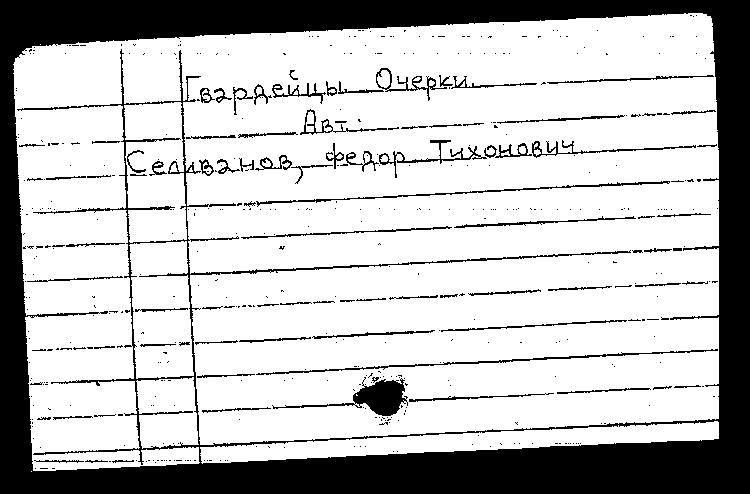 Гвардейцы. Очерки.
Авт.:
Селиванов, Федор Тихонович.